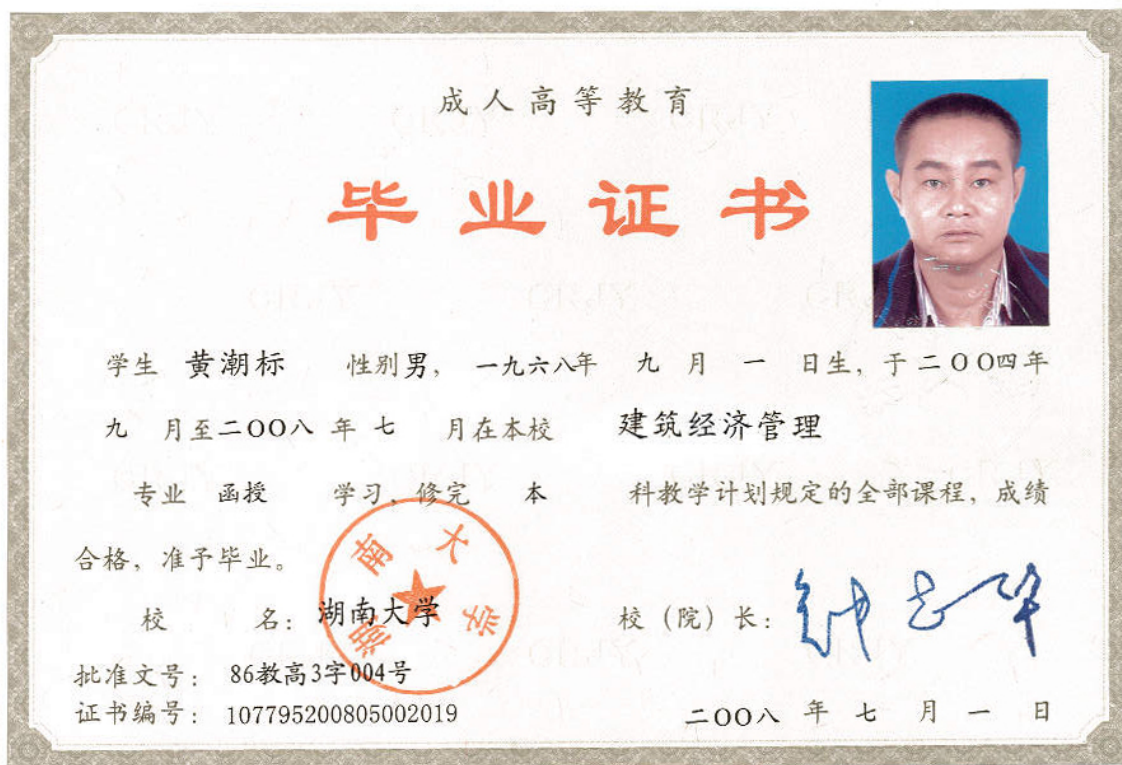 成人高等教育
毕业证书
学生 黄潮标 性别男, 一九六八年 九 月 一 日生, 于二〇〇四年
九 月至二〇〇八 年 七 月在本校 建筑经济管理
专业 函授 学习, 修完 本 科教学计划规定的全部课程, 成绩
合格, 准予毕业。
湖南大学
校 名: 湖南大学 校（院）长: 钟志华
批准文号: 86教高3字004号
证书编号: 107795200805002019 二〇〇八 年 七 月 一 日